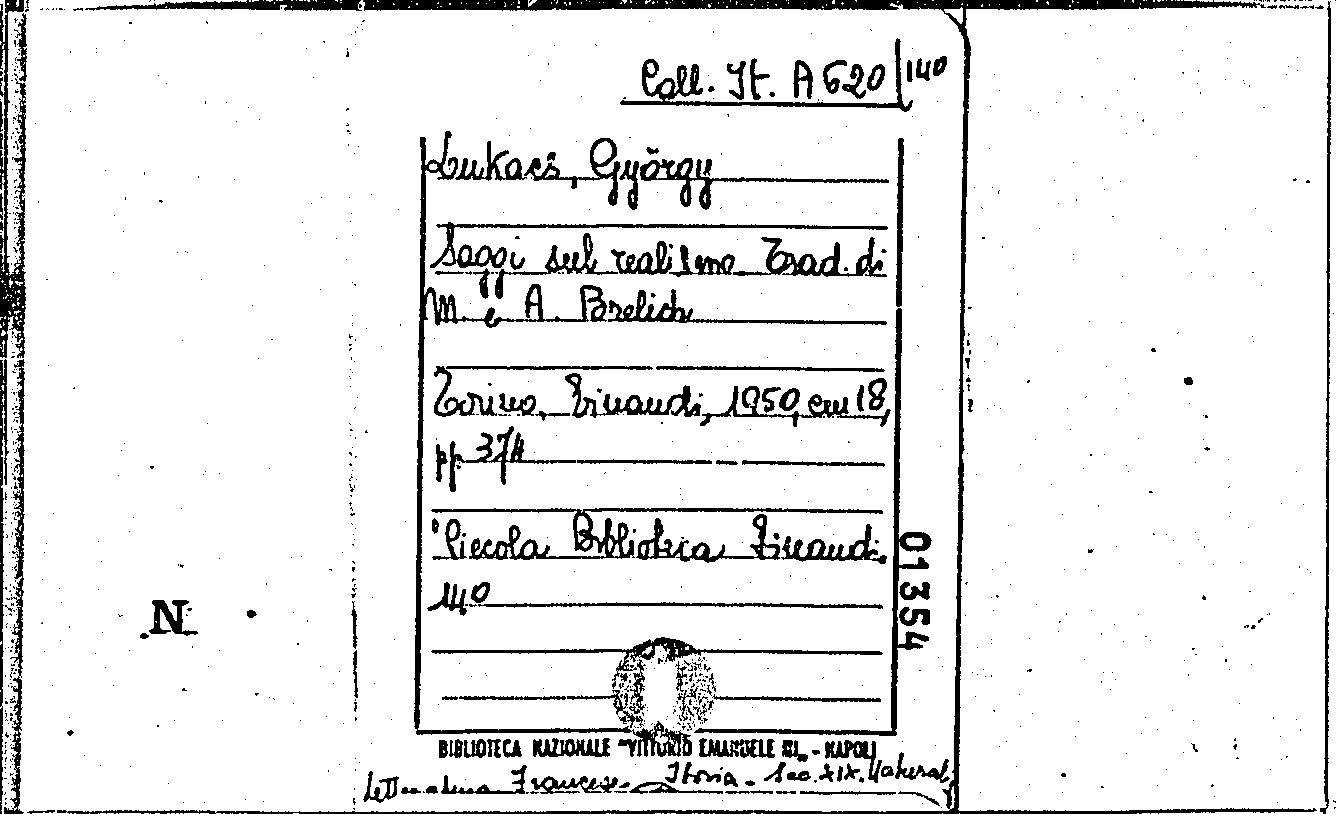 Coll. It. A 620 / 140
Lukacs, György
Saggi sul realismo Trad. di
M. e A. Brelich
Torino, Einaudi, 1950, cm 18,
pp. 374
Piccola Biblioteca Einaudi.
140
01354
N
BIBLIOTECA NAZIONALE "VITTORIO EMANUELE III" - NAPOLI
Letteratura Francese - Storia - Sec. XIX.